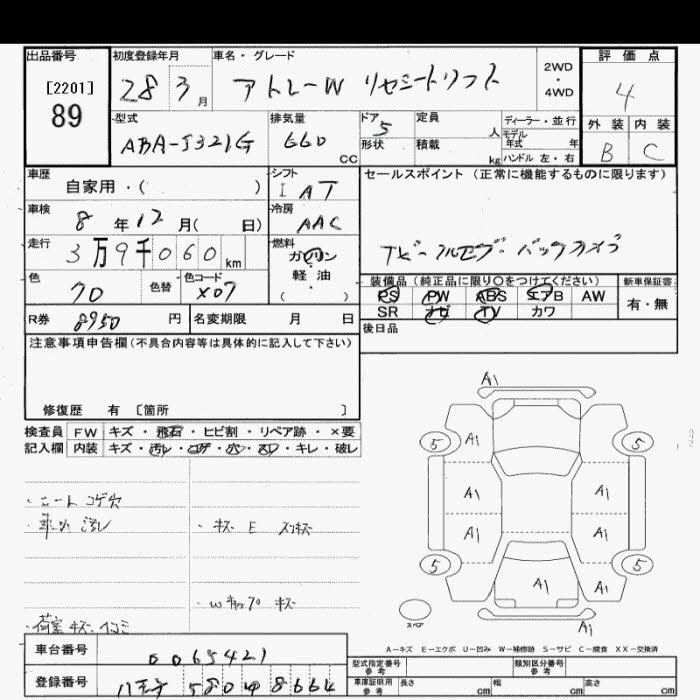 出品番号
[2201]
89
初度登録年月
28 3月
車名・グレード
アトレーW リヤシートリフト
2WD
・
4WD
評価点
4
外装 内装
B C
型式
ABA-S321G
排気量
660 CC
ドア 5
形状
定員 人
積載 kg
ディーラー・並行
モデル
年式 年
ハンドル 左・右
車歴
自家用・( )
シフト
I AT
冷房
AAC
車検
8年12月( 日)
走行
3万9千060km
燃料
ガソリン
軽・油
( )
色
70
色替
色コード
X07
セールスポイント (正常に機能するものに限ります)
ナビ フルセグ バックカメラ
装備品 (純正品に限り○をつけてください)
PS PW ABS エアB AW
SR ナビ TV カワ
新車保証書
有・無
後日品
R券 8950円
名変期限 月 日
注意事項申告欄(不具合内容等は具体的に記入して下さい)
修復歴 有 〔箇所 〕
検査員
記入欄
FW キズ・飛石・ヒビ割・リペア跡・×要
内装 キズ・汚レ・コゲ・穴・スレ・キレ・破レ
・シート コゲ穴
・車内 汚レ
・キズ E スリキズ
・荷室 キズ
A1
5 A1 5
A1 A1
A1 A1
5 A1 A1 5
A1
スペア
A-キズ E-エクボ U-凹み W-補修跡 S-サビ C-腐食 XX-交換済
車台番号
0065421
登録番号
八王子 580 ゆ 8664
型式指定番号
参考
類別区分番号
参考
車庫証明用
参考
長さ cm
幅 cm
高さ cm